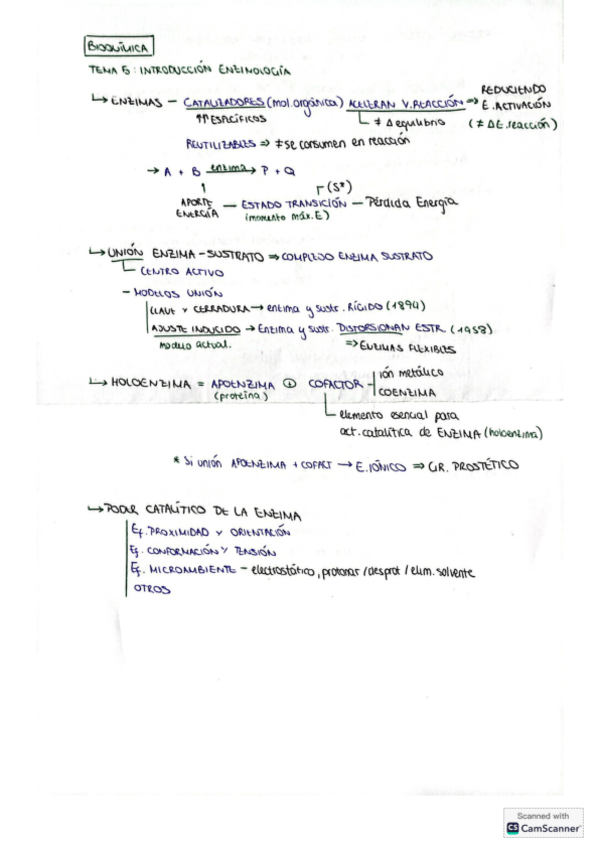 BIOQUÍMICA
TEMA 5: INTRODUCCIÓN ENZIMOLOGÍA
↳ ENZIMAS – CATALIZADORES (mol. orgánica) ACELERAN V. REACCIÓN ⇒ REDUCIENDO E. ACTIVACIÓN
↑↑ ESPECÍFICOS ≠ Δ equilibrio (≠ ΔE. reacción)
REUTILIZABLES ⇒ ≠ se consumen en reacción
→ A + B enzima → P + Q
APORTE ENERGÍA – ESTADO TRANSICIÓN (S*) – Pérdida Energía
(momento máx. E)
↳ UNIÓN ENZIMA – SUSTRATO ⇒ COMPLEJO ENZIMA SUSTRATO
CENTRO ACTIVO
– MODELOS UNIÓN
LLAVE Y CERRADURA → enzima y sustr. RÍGIDO (1894)
AJUSTE INDUCIDO → Enzima y sustr. DISTORSIONAN ESTR. (1958)
modelo actual. ⇒ ENZIMAS FLEXIBLES
↳ HOLOENZIMA = APOENZIMA + COFACTOR – ión metálico
(proteína) COENZIMA
elemento esencial para
act. catalítica de ENZIMA (holoenzima)
* Si unión APOENZIMA + COFACT → E. IÓNICO ⇒ GR. PROSTÉTICO
↳ PODER CATALÍTICO DE LA ENZIMA
Ef. PROXIMIDAD Y ORIENTACIÓN
Ef. CONFORMACIÓN Y TENSIÓN
Ef. MICROAMBIENTE – electrostático, protonar / desprot / elim. solvente
OTROS
Scanned with
CS CamScanner